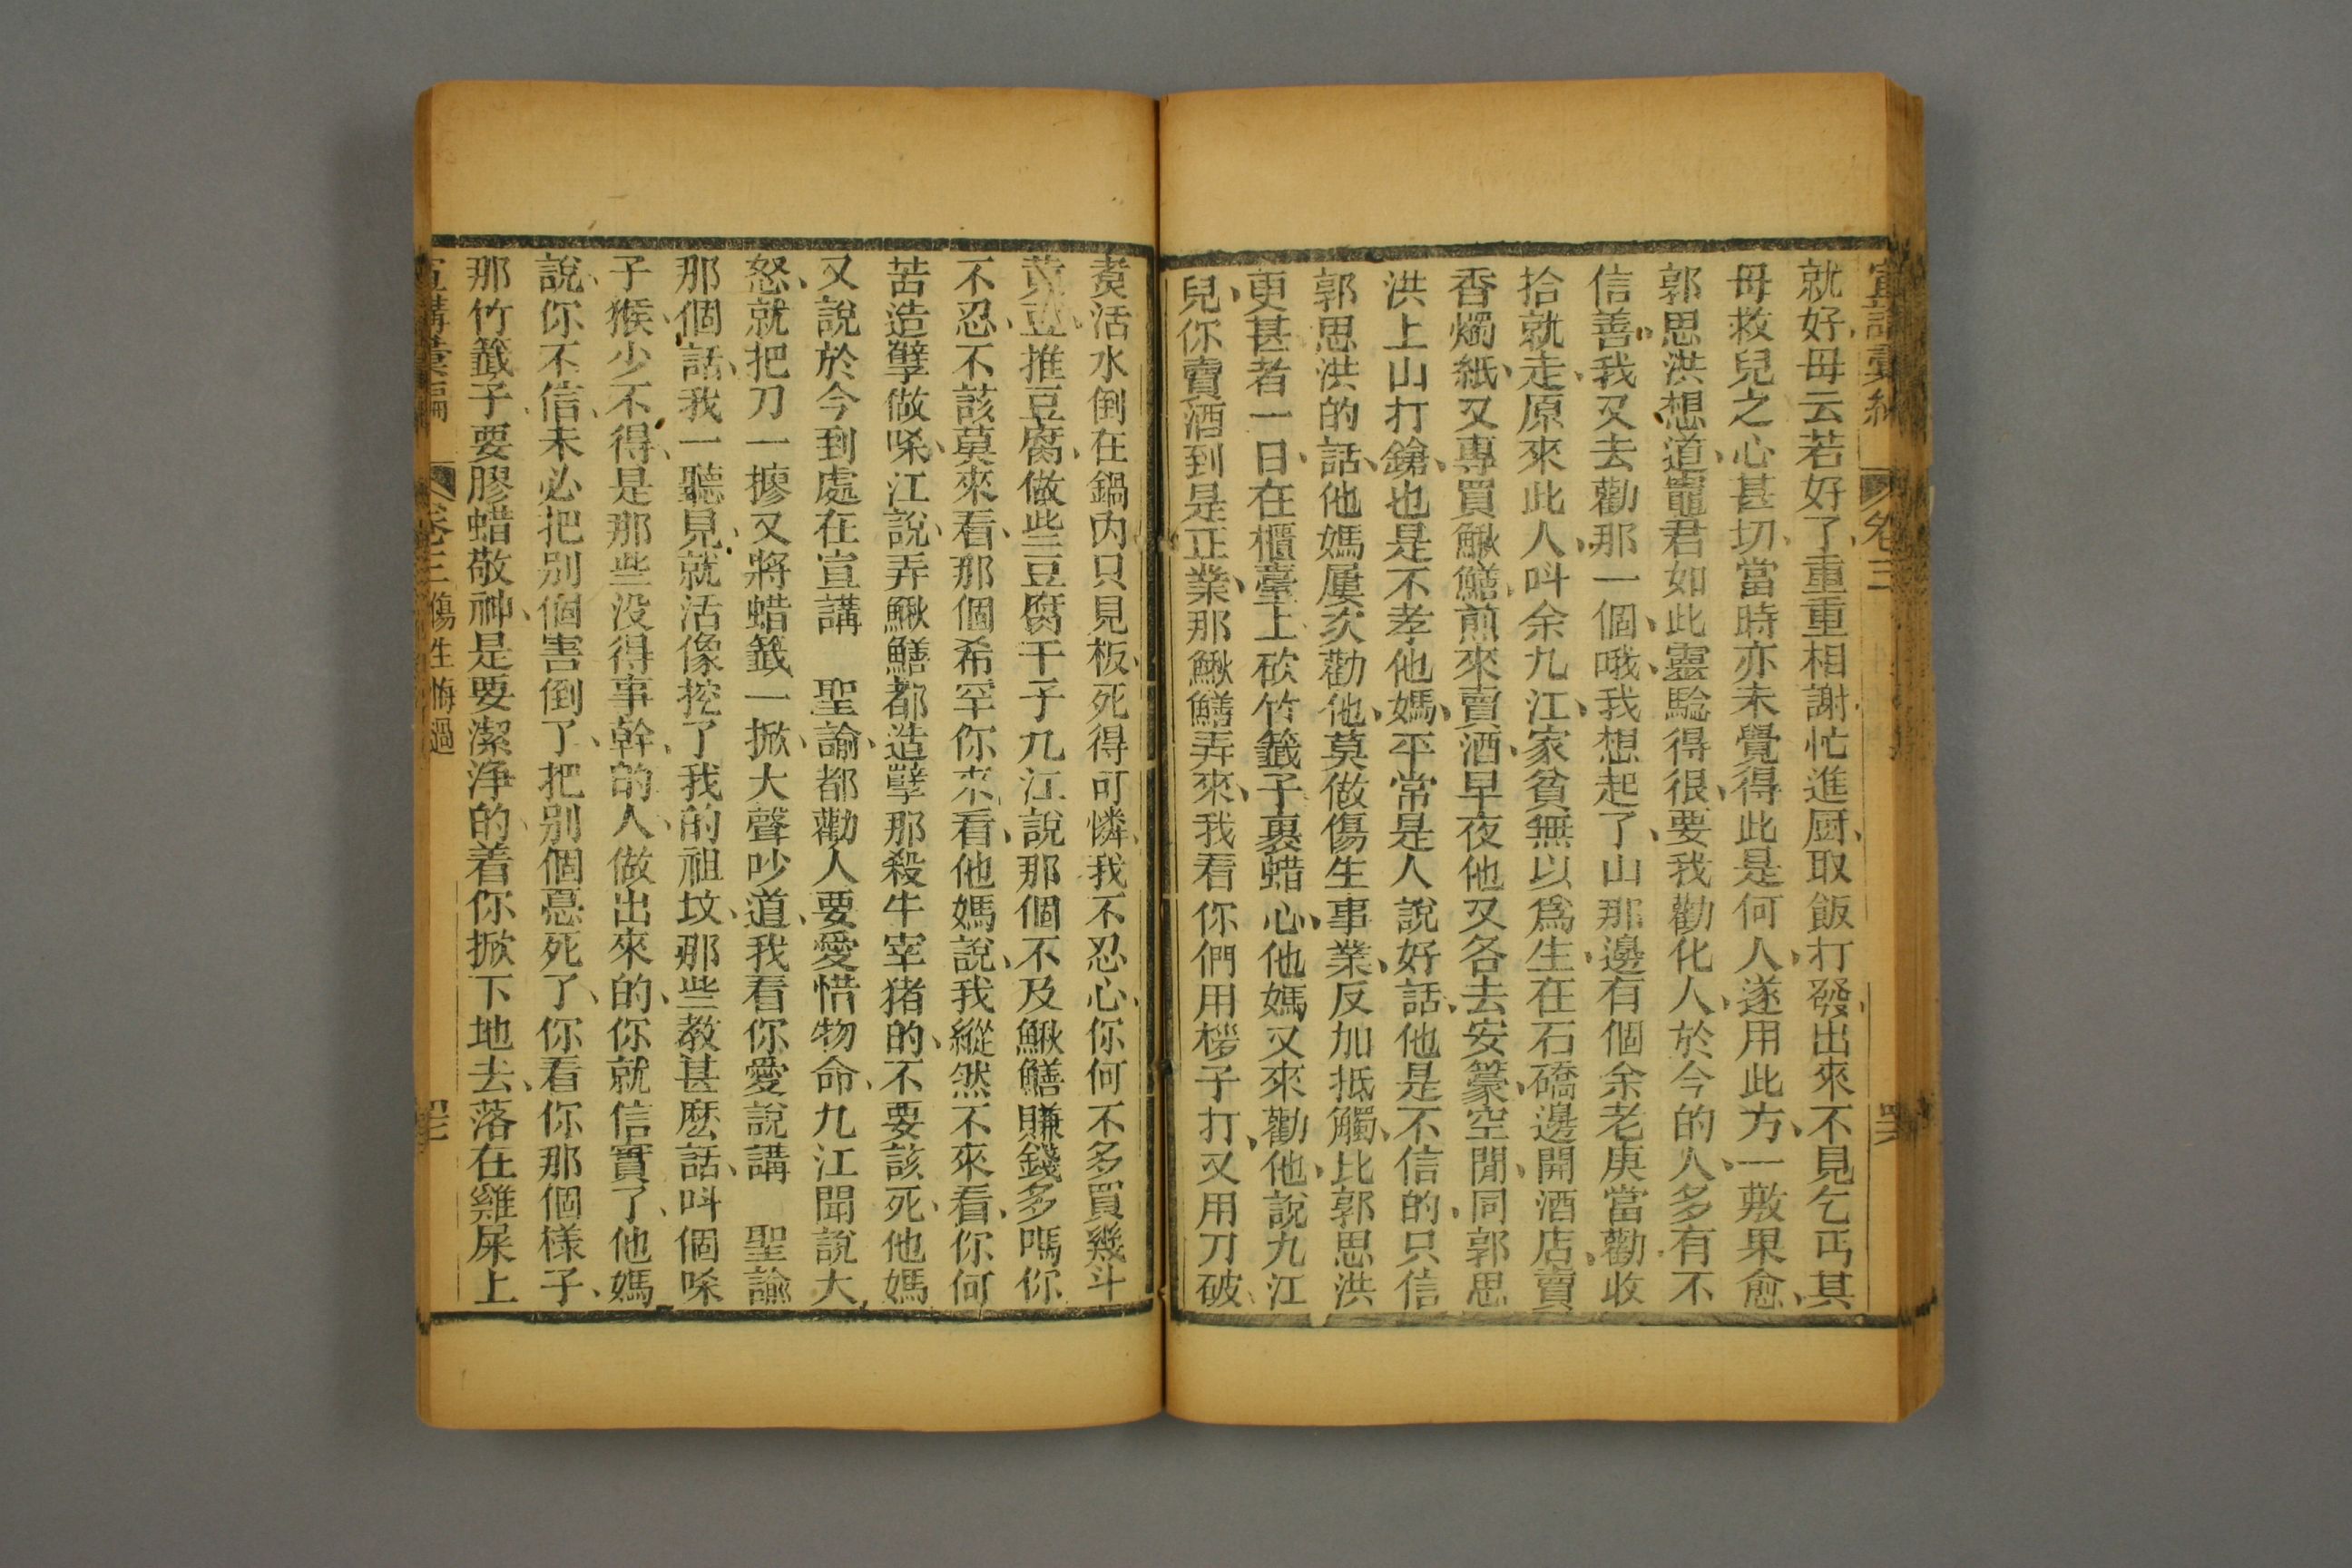 宣講彙編 卷三 四六
就好、毋云若好了、重重相謝、忙進厨、取飯打發、出來不見乞丐、其
母救兒之心甚切、當時亦未覺得此是何人、遂用此方、一敷果愈、
郭思洪想道、竈君如此靈騐得很、要我勸化人、於今的人、多有不
信善、我又去勸那一個、哦、我想起了、山那邊有個余老庚當勸收
拾就走、原來此人、叫余九江、家貧無以爲生、在石礄邊開酒店、賣
香燭紙、又專買鰍鱔、煎來賣酒、早夜他又各去安篆、空閒、同郭思
洪上山打鎗、也是不孝他媽、平常是人說好話、他是不信的、只信
郭思洪的話、他媽屢次勸他、莫做傷生事業、反加抵觸、比郭思洪
更甚者、一日、在櫃臺上砍竹籤子裹蜡心、他媽又來勸他、說九江
兒、你賣酒到是正業、那鰍鱔弄來、我看你們用椤子打、又用刀破
煑活水倒在鍋內只見板、死得可憐、我不忍心、你何不多買幾斗
黃豆、推豆腐、做些豆腐干子、九江說那個不及鰍鱔賺錢多嗎、你
不忍、不該莫來看、那個希罕你來看、他媽說、我縱然不來看、你何
苦造孽做㗏、江說、弄鰍鱔都造孽、那殺牛宰猪的、不要該死、他媽
又說於今到處在宣講 聖諭、都勸人要愛惜物命、九江聞說大
怒、就把刀一摝、又將蜡籤一掀、大聲吵道、我看你愛說講 聖諭
那個話、我一聽見、就活像挖了我的祖坟、那些教甚麽話、叫個㗏
子猴、少不得、是那些没得事幹、的人、做出來的、你就信實了、他媽
說、你不信、未必把別個害倒了、把别個惪死了、你看你那個樣子、
那竹籤子、要膠蜡敬神、是要潔浄的、着你掀下地去、落在雞屎上
宣講彙編 卷三 傷生悔過 四七